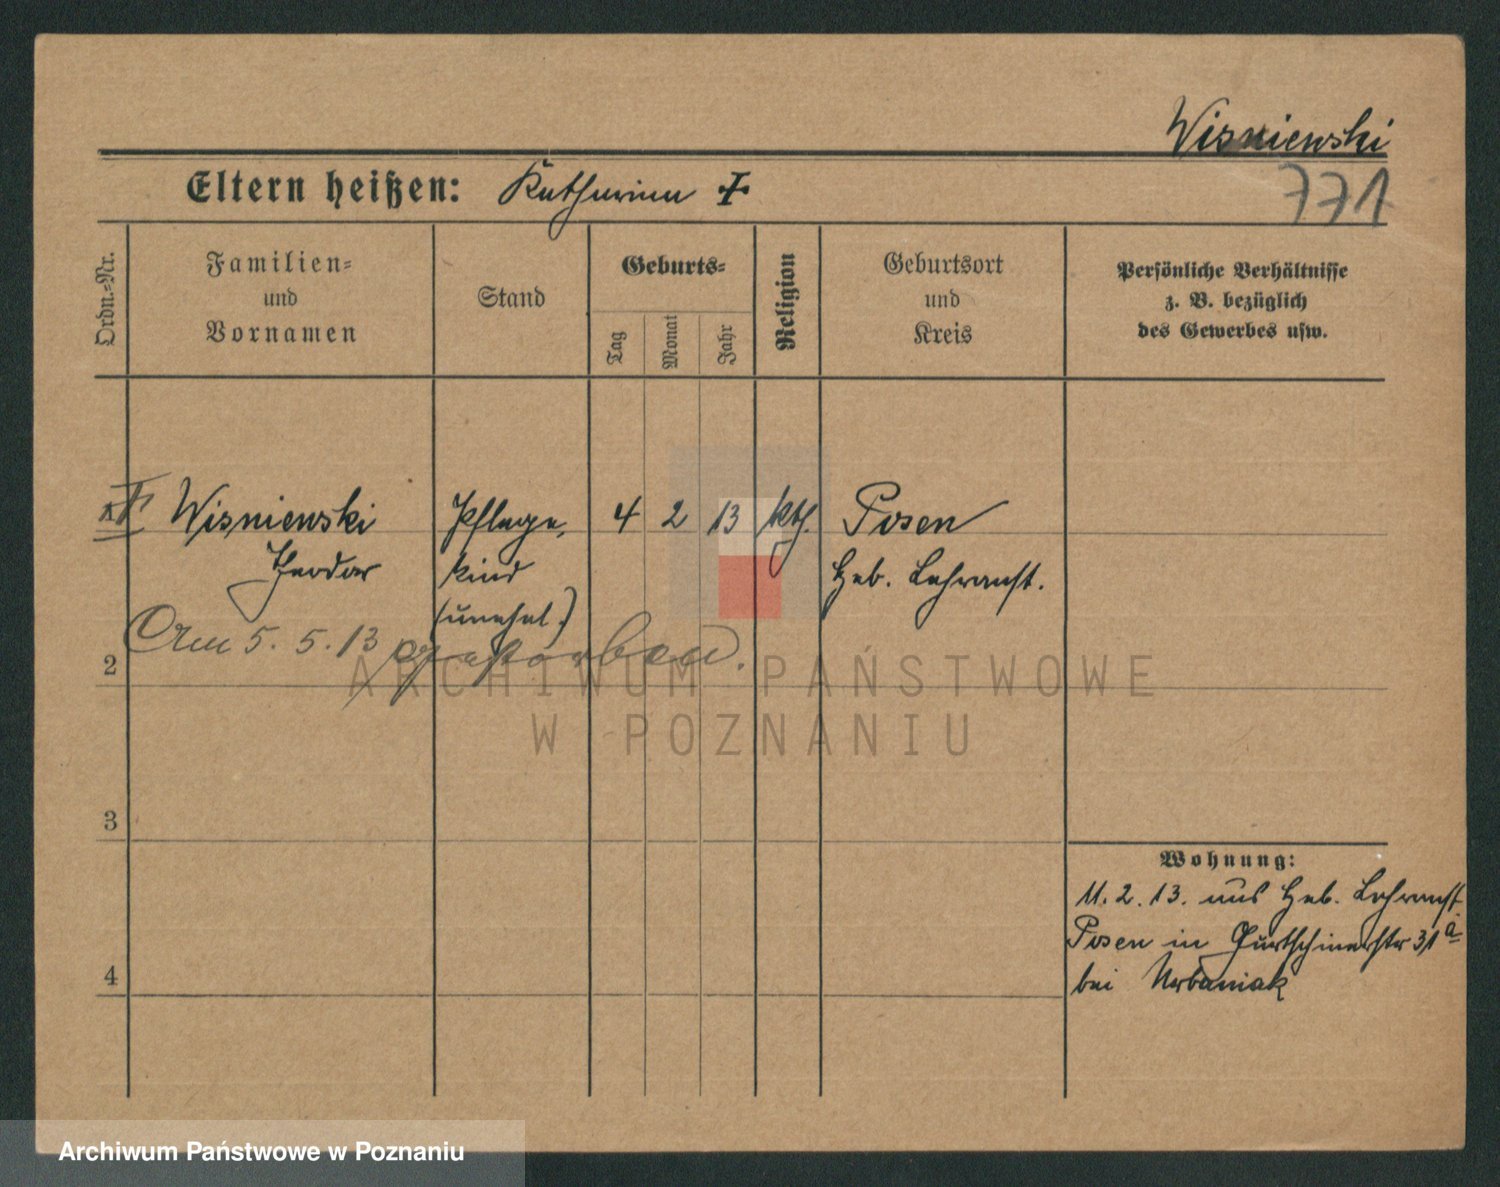 Wisniewski
771
Eltern heißen: Katharina
Ordn.-Nr.
Familien-
und
Vornamen
Stand
Geburts-
Tag
Monat
Jahr
Religion
Geburtsort
und
Kreis
Persönliche Verhältnisse
z. B. bezüglich
des Gewerbes usw.
Wisniewski Pflege 4 2 13 kth. Posen
Theodor kind Heb. Lehranst.
(unehel.)
Am 5. 5. 13 gestorben.
2
ARCHIWUM PAŃSTWOWE
W POZNANIU
3
Wohnung:
11. 2. 13. aus Heb. Lehranst.
Posen in Gurtschinerstr 31 a
4
bei Urbaniak
Archiwum Państwowe w Poznaniu